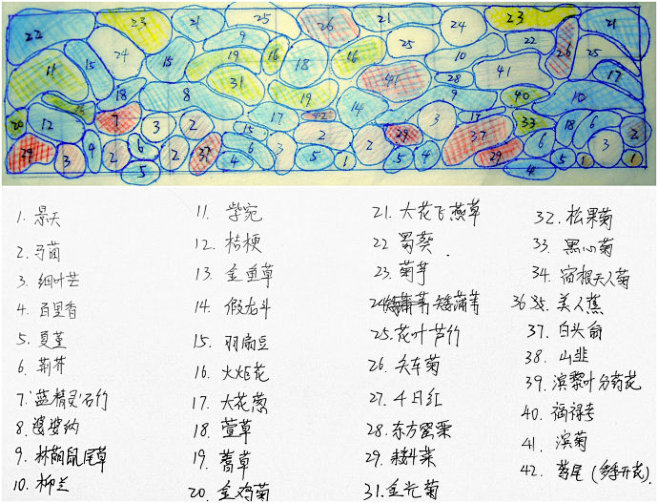 22 23 21 25 26 21 24 23 21
9 22
24 19 16 18 16 25 10 26 25
11 15 15 31 41 28 41 17
18 8 19 14 9 40 10
20 12 7 3 2 17 42 33 18 6 2
15 2 29 37
3 4 2 6 2 37 4 6 5 2 5 4 29 6 5 1 3 1
5 4
1. 景天
2. 马蔺
3. 细叶芒
4. 百里香
5. 夏堇
6. 荆芥
7. 蓝精灵石竹
8. 婆婆纳
9. 林荫鼠尾草
10. 柳兰
11. 紫宛
12. 桔梗
13. 金鱼草
14. 假龙头
15. 羽扇豆
16. 火炬花
17. 大花葱
18 萱草
19. 蓍草
20. 金鸡菊
21. 大花飞燕草
22 蜀葵
23. 菊芋
24 矮蒲苇
25. 花叶芦竹
26. 矢车菊
27. 千日红
28. 东方罂粟
29.
31. 金光菊
32. 松果菊
33. 黑心菊
34. 宿根天人菊
36 美人蕉
37. 白头翁
38. 山韭
39. 滨藜叶分药花
40. 福禄考
41. 滨菊
42. 鸢尾